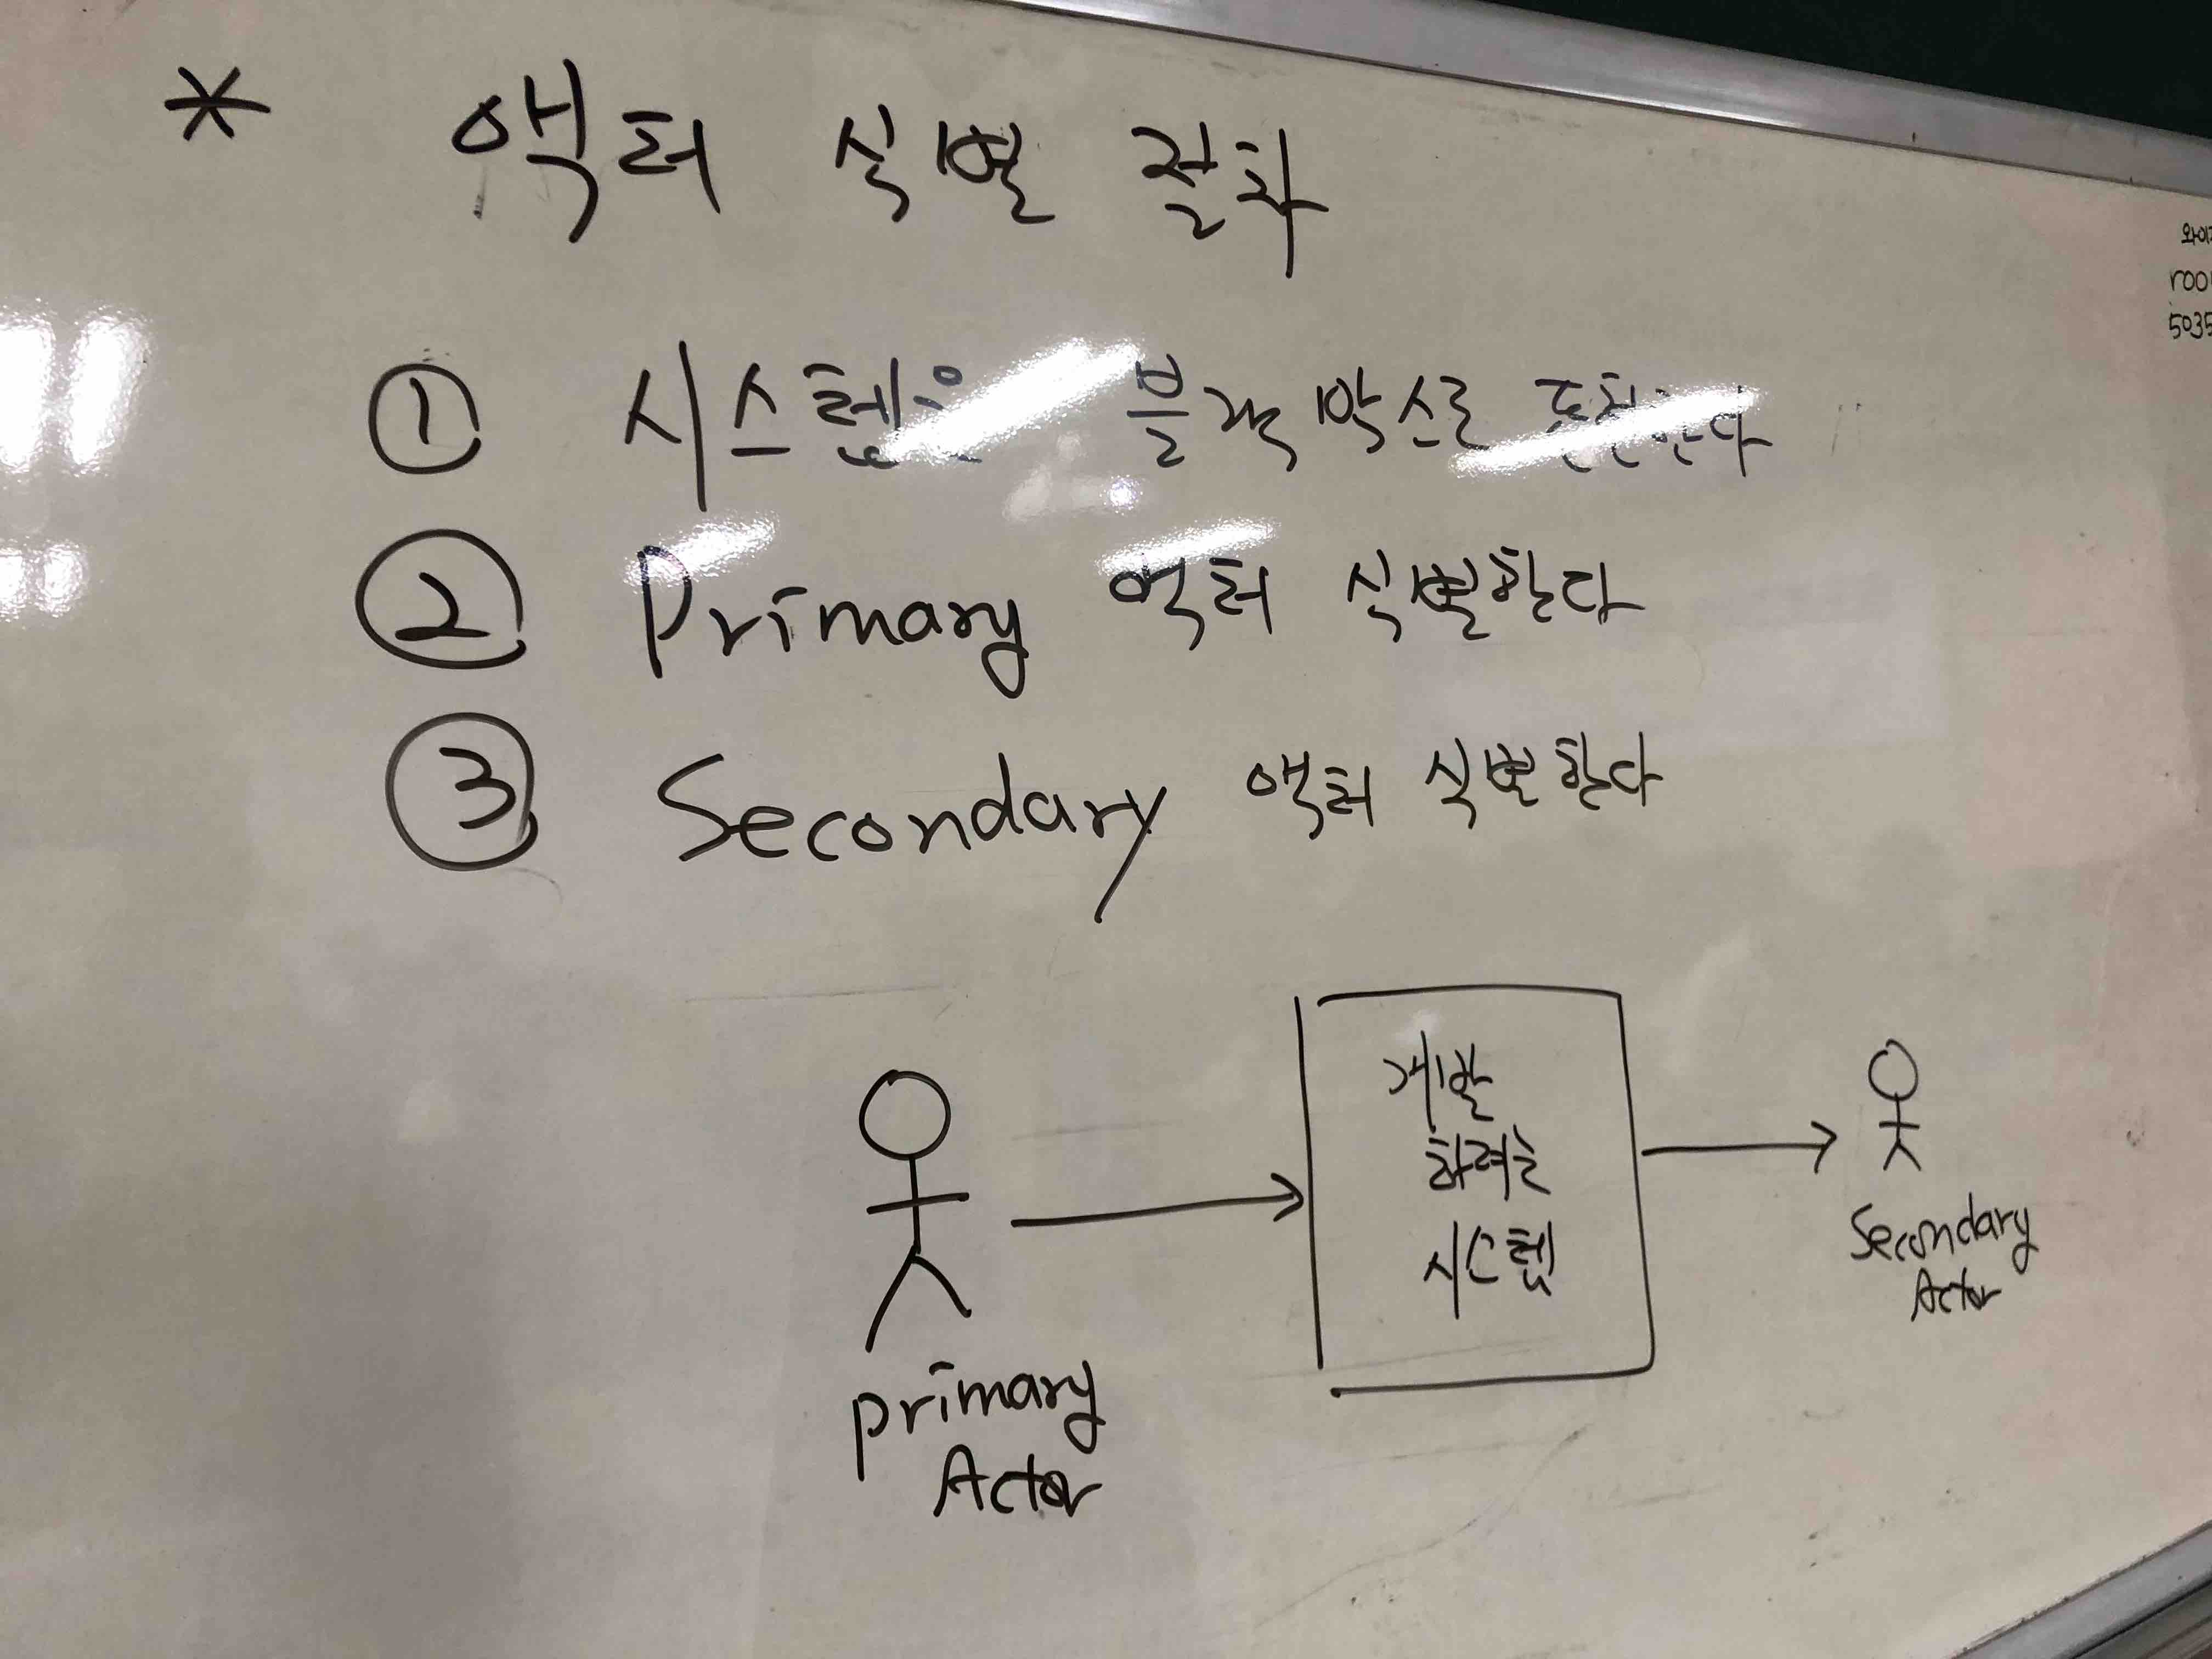 * 액터 식별 절차
① 시스템을 블랙박스로 표현한다
② Primary 액터 식별한다
③ Secondary 액터 식별한다
개발
하려는
시스템
Secondary
Actor
primary
Actor
5035